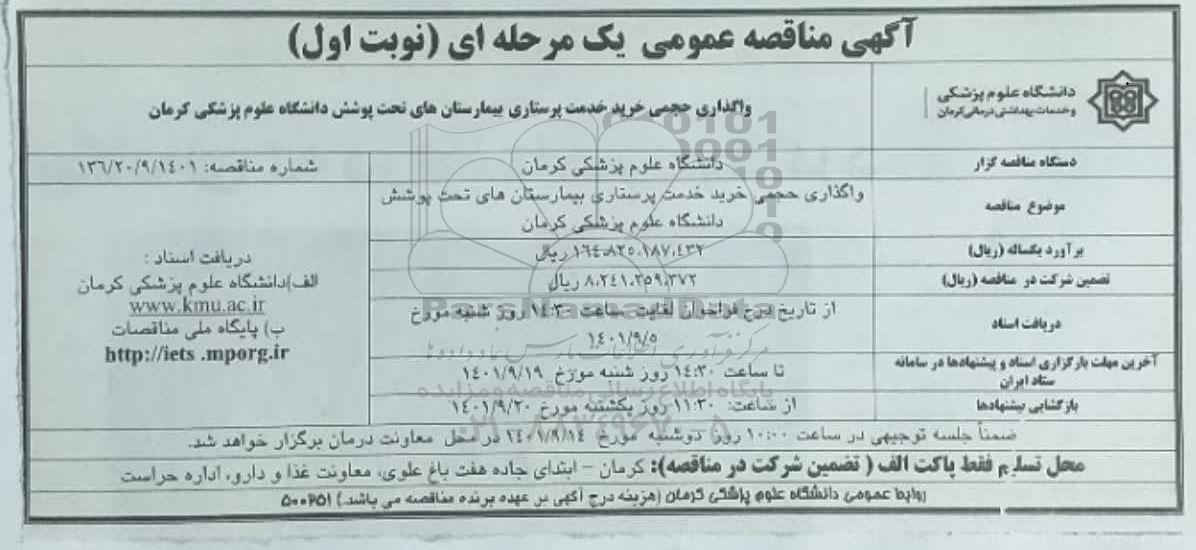 آگهی مناقصه عمومی یک مرحله ای (نوبت اول)
دانشگاه علوم پزشکی
و خدمات بهداشتی درمانی کرمان
واگذاری حجمی خرید خدمت پرستاری بیمارستان های تحت پوشش دانشگاه علوم پزشکی کرمان
دستگاه مناقصه گزار
دانشگاه علوم پزشکی کرمان
شماره مناقصه: ۱۳۶/۲۰/۹/۱٤۰۱
موضوع مناقصه
واگذاری حجمی خرید خدمت پرستاری بیمارستان های تحت پوشش
دانشگاه علوم پزشکی کرمان
برآورد یکساله (ریال)
۱٦٤،۸۲۵،۱۸۷،٤۳۲ ریال
تضمین شرکت در مناقصه (ریال)
۸،۲٤۱،۲۵۹،۳۷۲ ریال
دریافت اسناد
از تاریخ درج فراخوان لغایت ساعت ۱٤:۳۰ روز شنبه مورخ
۱٤۰۱/۹/۵
آخرین مهلت بارگزاری اسناد و پیشنهادها در سامانه
ستاد ایران
تا ساعت ۱٤:۳۰ روز شنبه مورخ ۱٤۰۱/۹/۱۹
بازگشایی پیشنهادها
از ساعت: ۱۱:۳۰ روز یکشنبه مورخ ۱٤۰۱/۹/۲۰
دریافت اسناد :
الف)دانشگاه علوم پزشکی کرمان
www.kmu.ac.ir
ب) پایگاه ملی مناقصات
http://iets .mporg.ir
ضمناً جلسه توجیهی در ساعت ۱۰:۰۰ روز دوشنبه مورخ ۱٤۰۱/۹/۱٤ در محل معاونت درمان برگزار خواهد شد.
محل تسلیم فقط پاکت الف ( تضمین شرکت در مناقصه): کرمان – ابتدای جاده هفت باغ علوی، معاونت غذا و دارو، اداره حراست
روابط عمومی دانشگاه علوم پزشکی کرمان (هزینه درج آگهی بر عهده برنده مناقصه می باشد.) ۵۰۰۲۵۱
ParsNamadData
پایگاه اطلاع رسانی مناقصه و مزایده